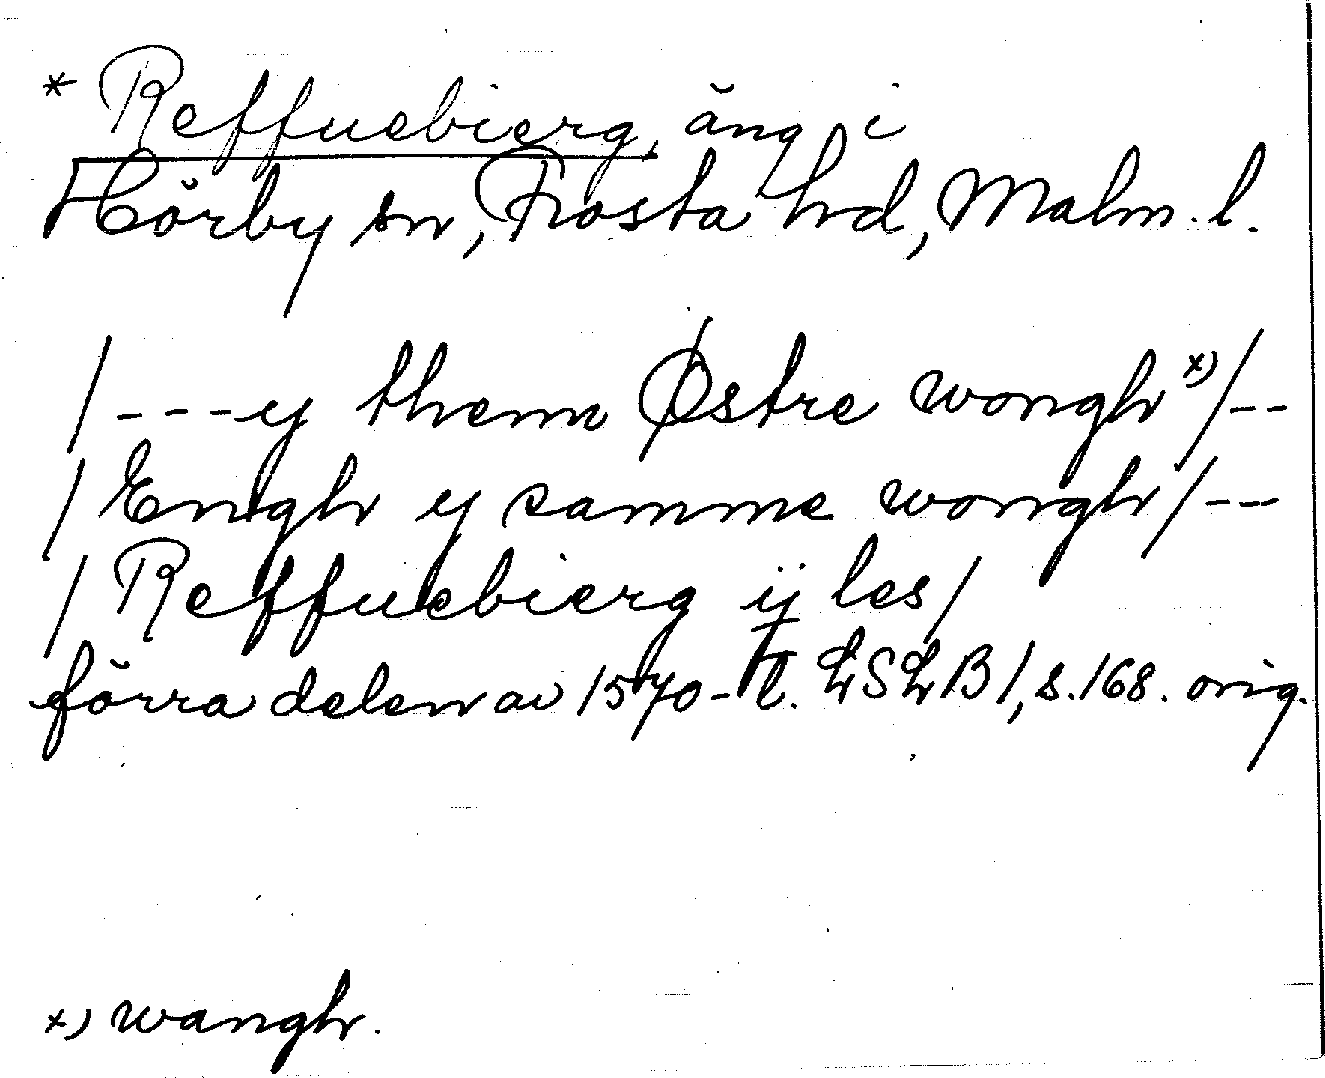 * Reffuebierg, äng i
Hörby sn, Frosta hd, Malm. l.
/---y them Østre wongh x)/--
/Engh y samme wongh/--
/Reffuebierg ij les/
förra delen av 1570-t. LSLB 1, s. 168. orig.
x) wangh.